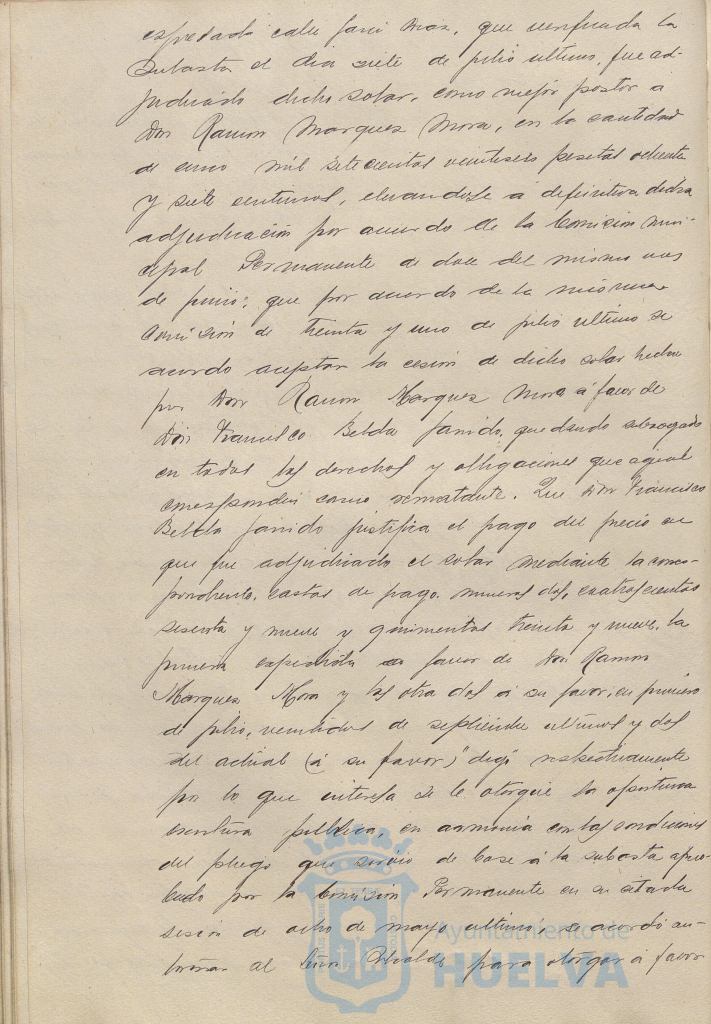 calle que verificada la
Subasta el dia siete de julio ultimo, fue ad-
judicado dicho solar, como mejor postor a
Don Ramon Marquez Mora, en la cantidad
de cinco mil setecientas veintiseis pesetas ochenta
y siete centimos, elevandose a definitiva dicha
adjudicación por acuerdo de la Comision muni-
cipal Permanente de doce del mismo mes
de que por acuerdo de la misma
Comisión de treinta y uno de julio ultimo se
acordo aceptar la cesión de dicho solar hecha
por Don Ramon Marquez Mora á favor de
Don Francisco Belda quedando subrogado
en todos los derechos y obligaciones que aquel
corresponden como rematante. Que Don Francisco
Belda justifica el pago del precio en
que fue adjudicado el solar mediante la corres-
pondiente, cartas de pago, numeros dos, cuatrocientos
sesenta y nueve y quinientos treinta y nueve, la
primera expedida a favor de Don Ramon
Marquez Mora y las otra dos á su favor, en primero
de julio, veintidos de septiembre ultimos y dos
del actual (á su favor) "digo respectivamente
por lo que interesa se le otorgue la oportuna
escritura publica, en armonia con las condiciones
del pliego que sirvio de base á la subasta apro-
bado por la Comisión Permanente en su citada
sesion de ocho de mayo ultimo, se acordó au-
torizar al Señor Alcalde para otorgar á favor
Ayuntamiento de
HUELVA